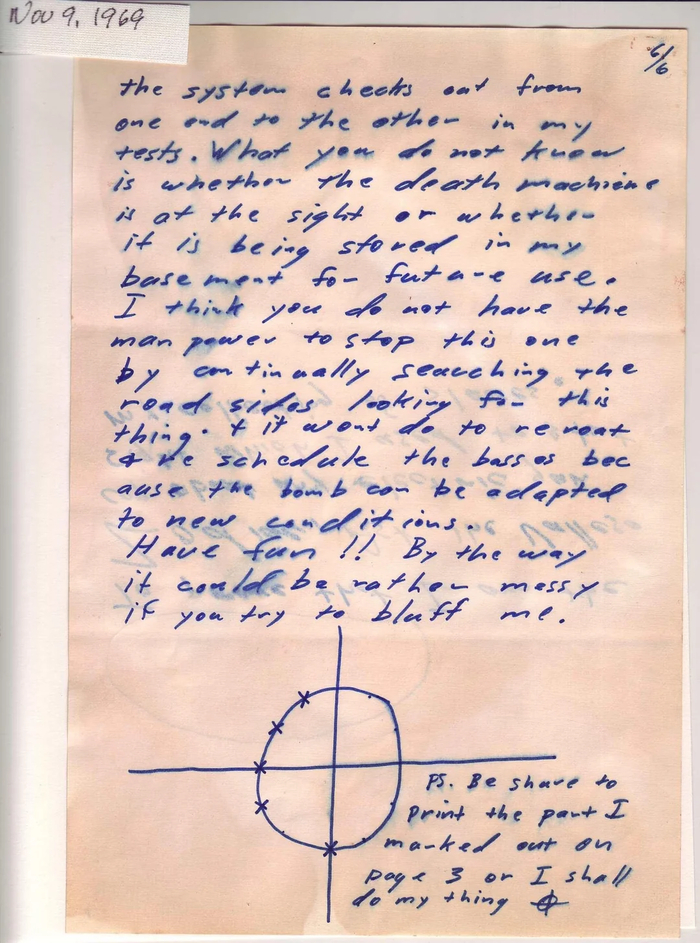 Nov 9, 1969
6/6
the system checks out from
one end to the other in my
tests. What you do not know
is whether the death machiene
is at the sight or whether
it is being stored in my
basement for future use.
I think you do not have the
man power to stop this one
by continually searching the
road sides looking for this
thing. & it wont do to re roat
& re schedule the busses bec
ause the bomb can be adapted
to new conditions.
Have fun!! By the way
it could be rather messy
if you try to bluff me.
PS. Be shure to
print the part I
marked out on
page 3 or I shall
do my thing